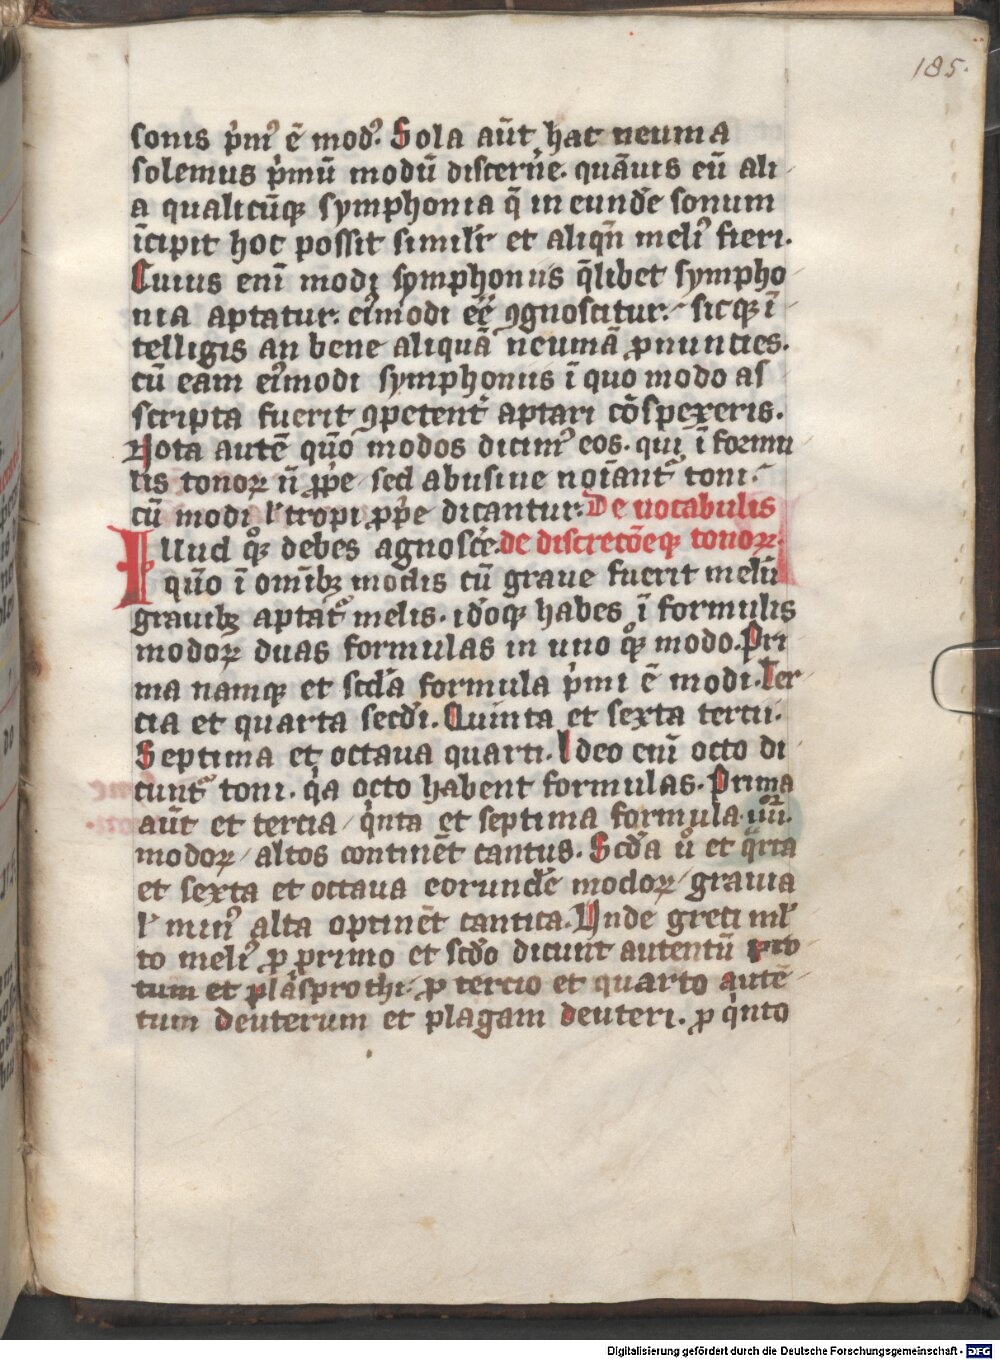 185.
sonis p̍m᷒ ē mod᷒. Sola aūt hac neuma
solemus p̍mū modū discern̄e. quāuis eū ali
a qualicūqꝫ symphonia q̄ in eund̄e sonum
īcipit hoc possit simil̄r et aliqn̄ meli᷒ fieri.
Cuius eni̅ modi symphonus q̄libet sympho
nia aptatur. ei᷒modi eē ꝯgnoscitur. sicqꝫ ī
telligis an bene aliquā neumā ꝓnuncies.
cū eam ei᷒modi symphonus ī quo modo as
scripta fuerit ꝯpetent̄ aptari cōspexeris.
Nota autē quō modos dicim᷒ eos. qui ī formu
lis tonoꝝ n̄ ꝓp̄e sed abusiue noīant᷑ toni.
cū modi l̓ tropi ꝓp̄e dicantur. De uocabulis
Illud qͦꝫ debes agnosc̄e. de discretōeqꝫ tonoꝝ.
quō ī omībꝫ modis cū graue fuerit melū
grauibꝫ aptat᷑ melis. id̄oqꝫ habes ī formulis
modoꝝ duas formulas in uno qͦꝫ modo. Pri
ma namqꝫ et scd̄a formula p̍mi ē modi. Ter
cia et quarta secd̄i. Quinta et sexta tercii.
Septima et octaua quarti. Ideo eni̅ octo di
cunt᷑ toni. q̍a octo habent formulas. Prima
aūt et tercia / q̍nta et septima formula. iiiiͦꝝ.
modoꝝ / altos continēt cantus. Scd̄a u̓o et qᷓrta
et sexta et octaua eorund̄e modoꝝ / grauia
l̓ min᷒ alta optinēt cantica. Vnde greci ml̓
to meli᷒ ꝓ primo et scd̄o dicunt autentū pro
tum et plāsprothi. ꝓ tercio et quarto autē
tum deuterum et plagam deuteri. ꝓ q̍nto
Digitalisierung gefördert durch die Deutsche Forschungsgemeinschaft - DFG